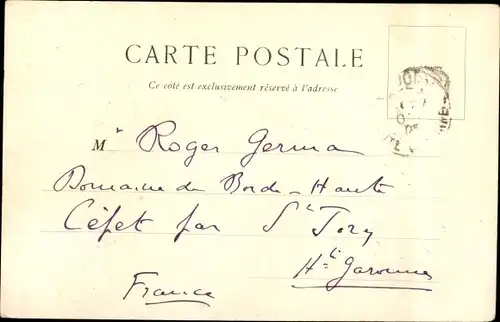 CARTE POSTALE
Ce côté est exclusivement réservé à l'adresse
Mr Roger Germa
Domaine de Borde-Haute
Cépet par St Jory
Hte Garonne
France